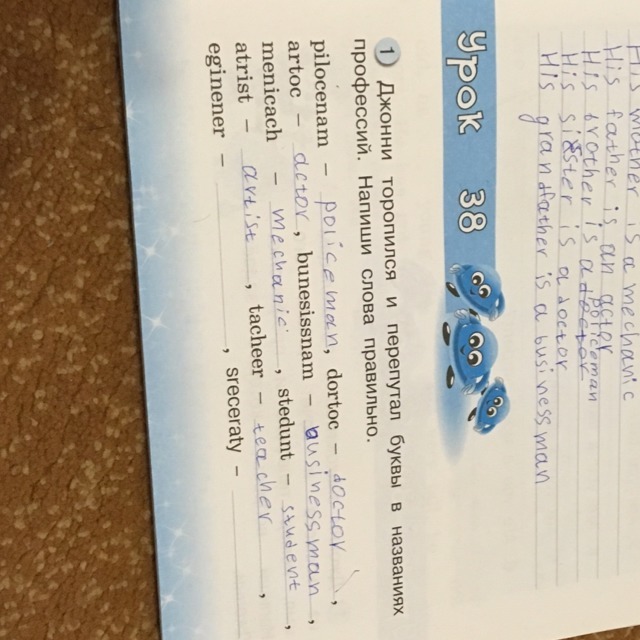 His mother is a mechanic
His father is an actor
policeman
His brother is a doctor
His sister is a doctor
His grandfather is a businessman
Урок 38
1 Джонни торопился и перепутал буквы в названиях
профессий. Напиши слова правильно.
pilocenam – policeman, dortoc – doctor,
artoc – actor, bunesissnam – businessman,
menicach – mechanic, stedunt – student,
atrist – artist, tacheer – teacher,
eginener – , sreceraty –